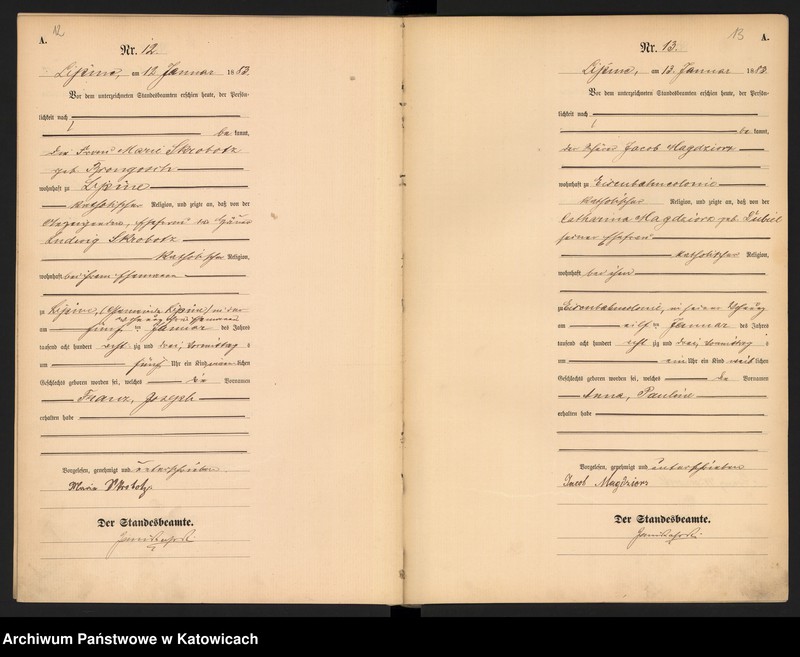 A.
12
Nr. 12.
Lipine, am 12. Januar 1883.
Vor dem unterzeichneten Standesbeamten erschien heute, der Persön-
lichkeit nach
be kannt,
die Frau Marie Skrobotz
geb.
wohnhaft zu Lipine
katholischer Religion, und zeigte an, daß von der
Ludwig Skrobotz
katholischer Religion,
wohnhaft bei ihrem Ehemann
zu Lipine, (Gemeinde Lipine) in der
am fünf ten Januar des Jahres
tausend acht hundert acht zig und drei, Vormittag s
um fünf Uhr ein Kind männlichen
Geschlechts geboren worden sei, welches die Vornamen
Franz, Joseph
erhalten habe
Vorgelesen, genehmigt und unterschrieben
Maria Skrobotz
Der Standesbeamte.
13
A.
Nr. 13.
Lipine, am 13. Januar 1883.
Vor dem unterzeichneten Standesbeamten erschien heute, der Persön-
lichkeit nach
be kannt,
der Jacob Magdziorz
wohnhaft zu Eisenbahncolonie
katholischer Religion, und zeigte an, daß von der
Catharina Magdziorz geb.
seiner Ehefrau
katholischer Religion,
wohnhaft bei ihm
zu Eisenbahncolonie, in seiner
am eilf ten Januar des Jahres
tausend acht hundert acht zig und drei, Vormittag s
um ein Uhr ein Kind weiblichen
Geschlechts geboren worden sei, welches die Vornamen
Anna, Pauline
erhalten habe
Vorgelesen, genehmigt und unterschrieben
Jacob Magdziorz
Der Standesbeamte.
Archiwum Państwowe w Katowicach